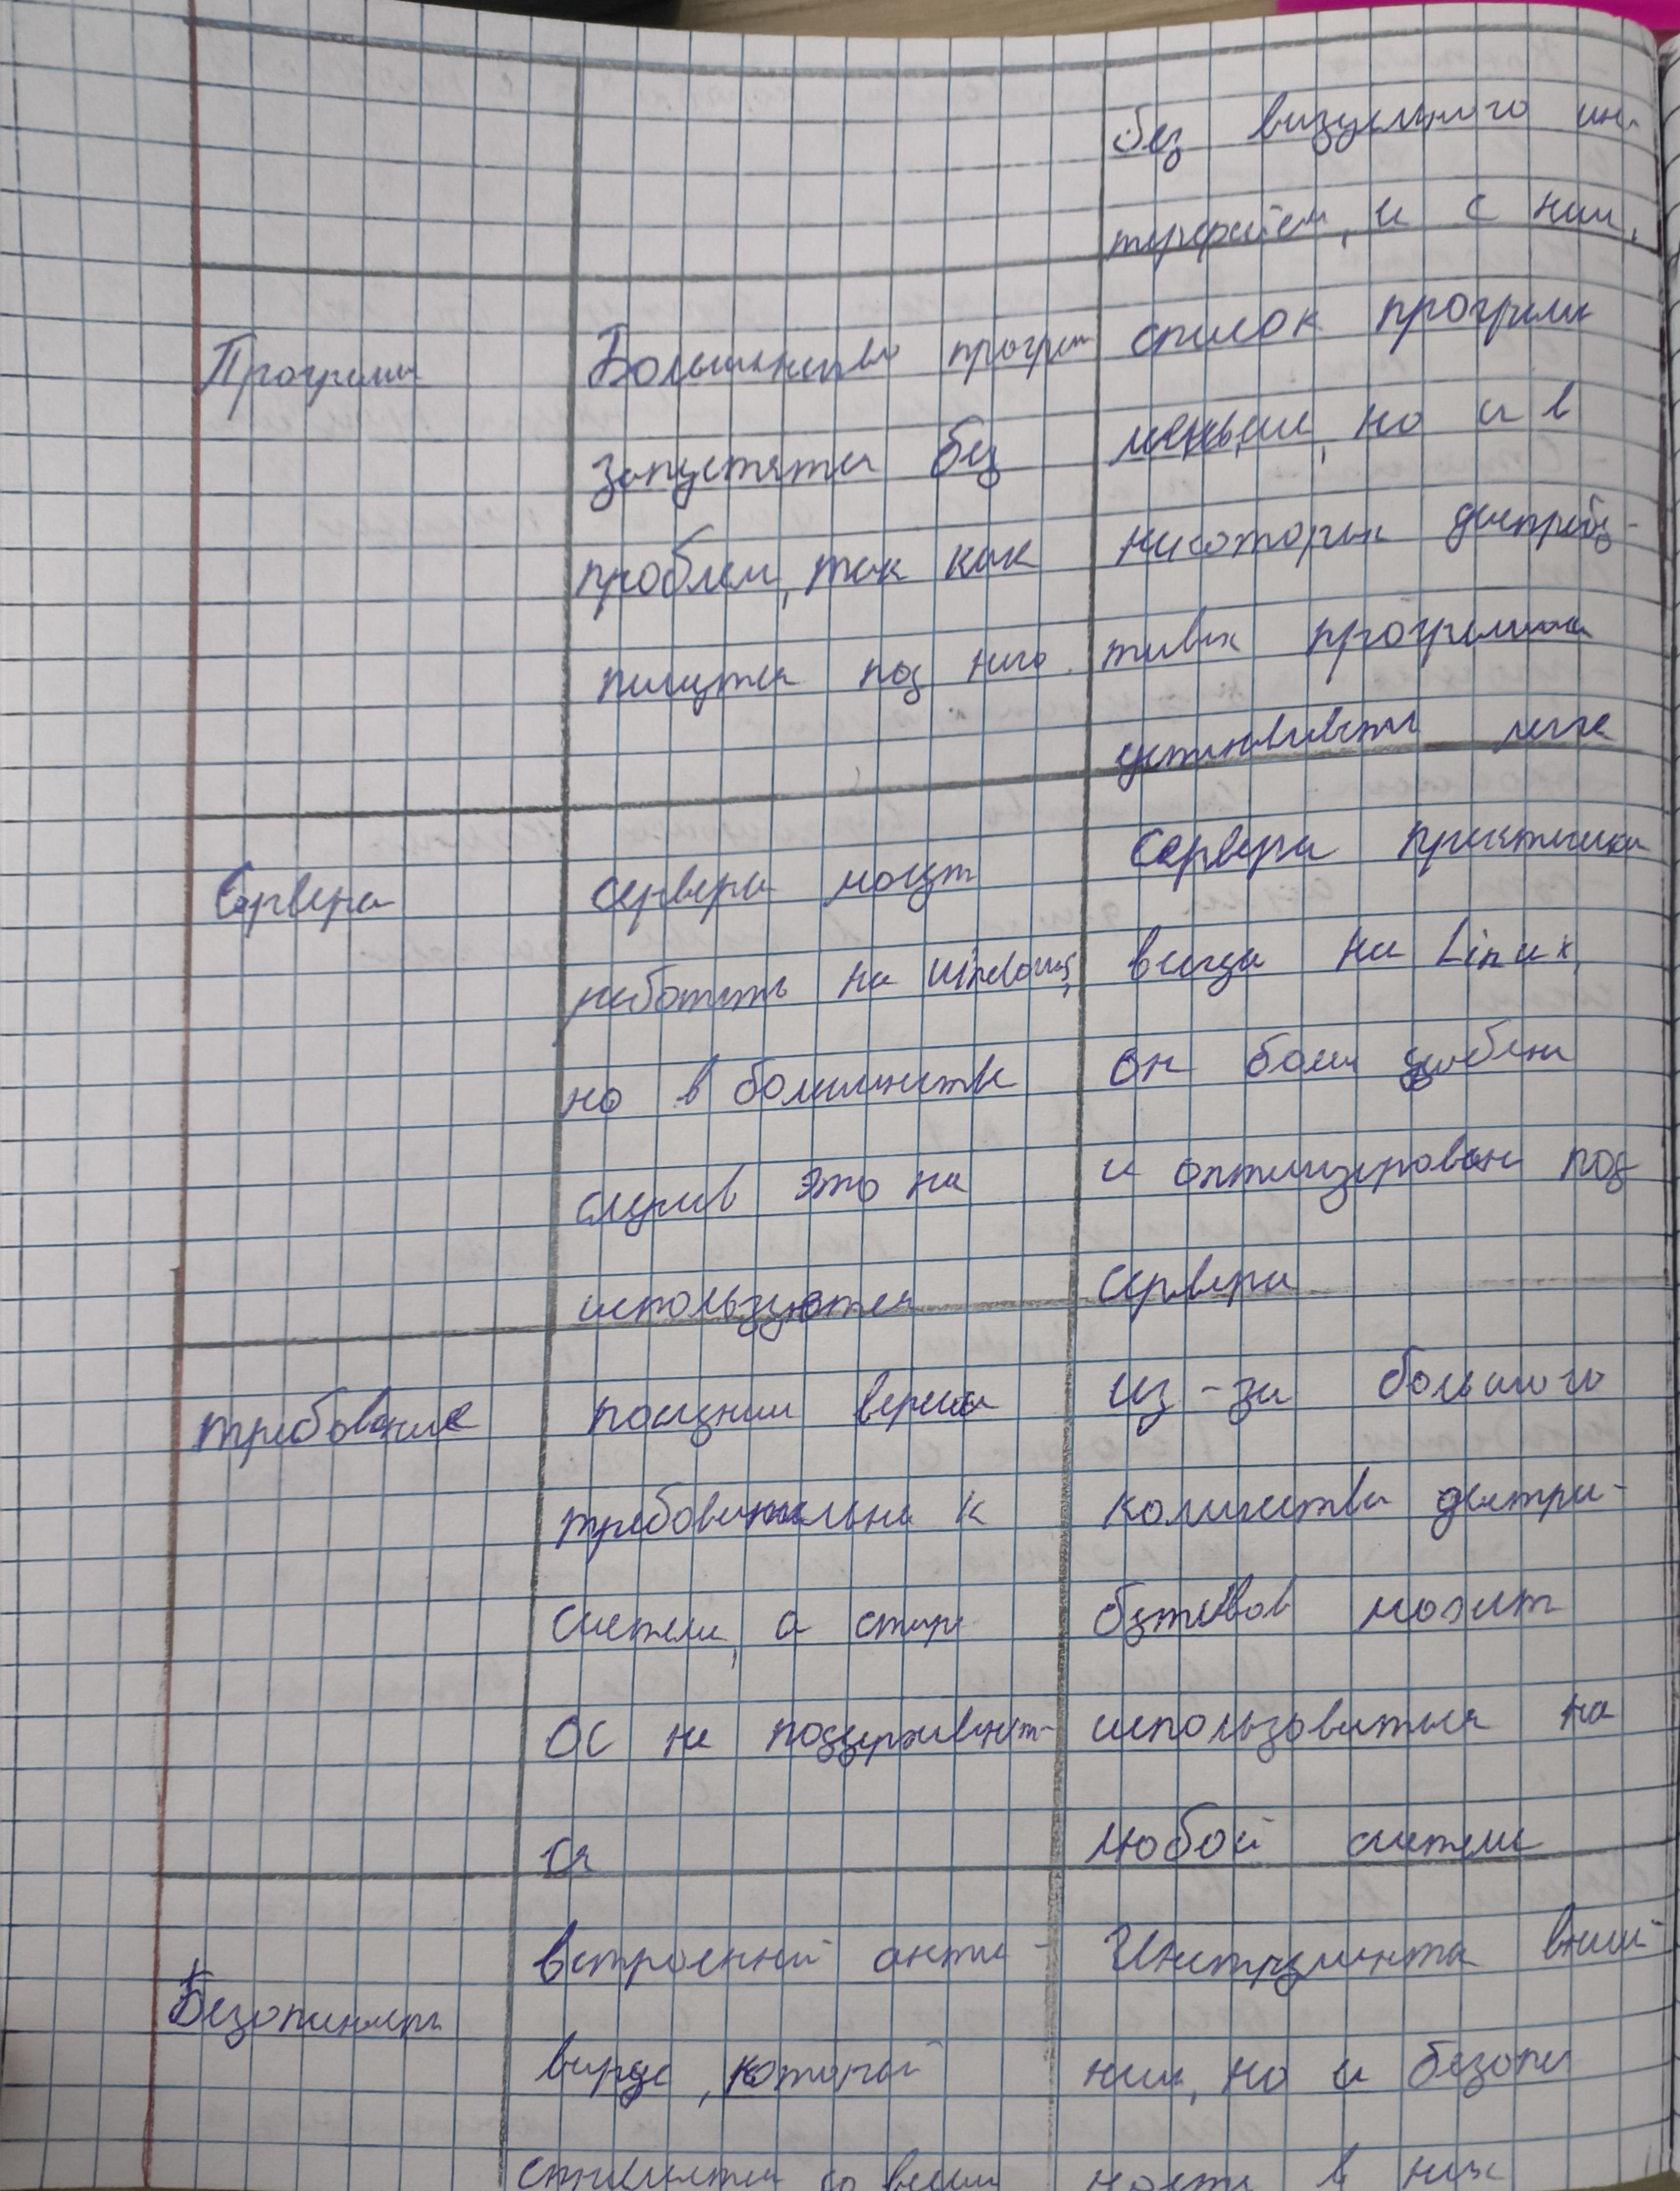 без визуального ин-
терфейса, и с ним.
Программы
Большинство програм
запустятся без
проблем, так как
пишутся под него.
список программ
меньше, но и в
некоторых дистрибу-
тивах программы
установить легче
Сервера
сервера могут
работать на Windows,
но в большинстве
случаев это не
используются
Сервера практически
всегда на Linux,
он более удобен
и оптимизирован под
сервера
требование
последние версии
требовательна к
системе, а старые
ОС не поддерживают-
ся
из-за большого
количества дистри-
бутивов может
использоваться на
любой системе
Безопасность
встроенный анти-
вирус, который
со всеми
Инструмента
ним, но и безопас
ность в них